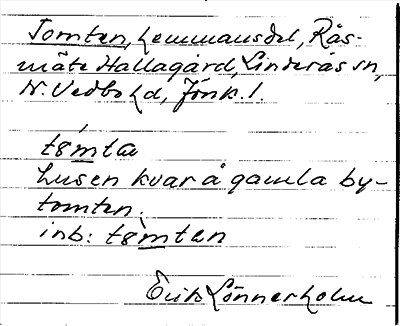 Tomten, hemmansdel, Rås-
mäte Hallagård, Linderås sn,
N. Vedbo hd, Jönk. l.
tømta
husen kvar å gamla by-
tomten.
inb: tømten
Erik Lönnerholm